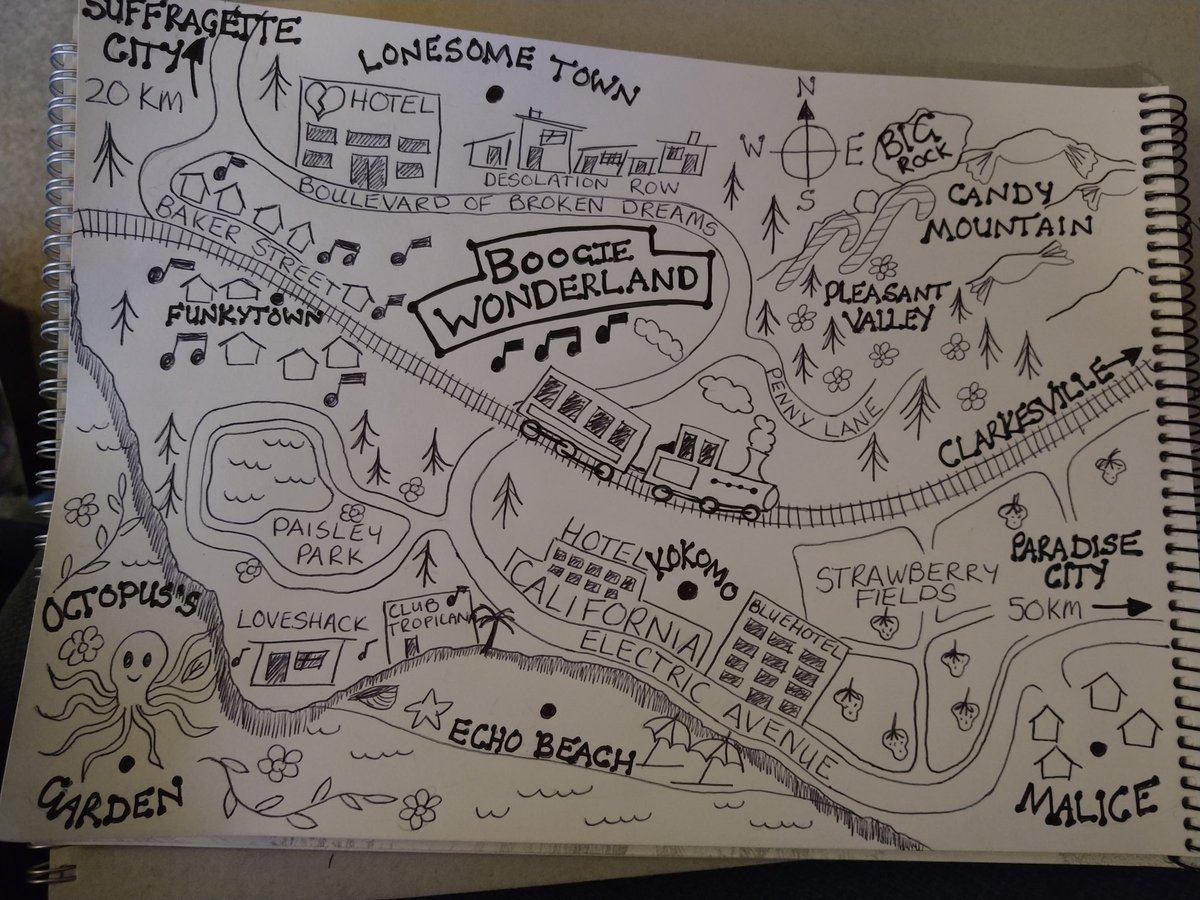 SUFFRAGETTE
CITY
20 KM
LONESOME TOWN
HOTEL
DESOLATION ROW
BOULEVARD OF BROKEN DREAMS
N
W E
S
BIG
ROCK
CANDY
MOUNTAIN
BAKER STREET
BOOGIE
WONDERLAND
FUNKYTOWN
PLEASANT
VALLEY
PENNY LANE
CLARKESVILLE
PAISLEY
PARK
HOTEL
CALIFORNIA
KOKOMO
STRAWBERRY
FIELDS
PARADISE
CITY
50KM
OCTOPUS'S
GARDEN
LOVESHACK
CLUB
TROPICANA
ELECTRIC AVENUE
BLUEHOTEL
ECHO BEACH
MALICE